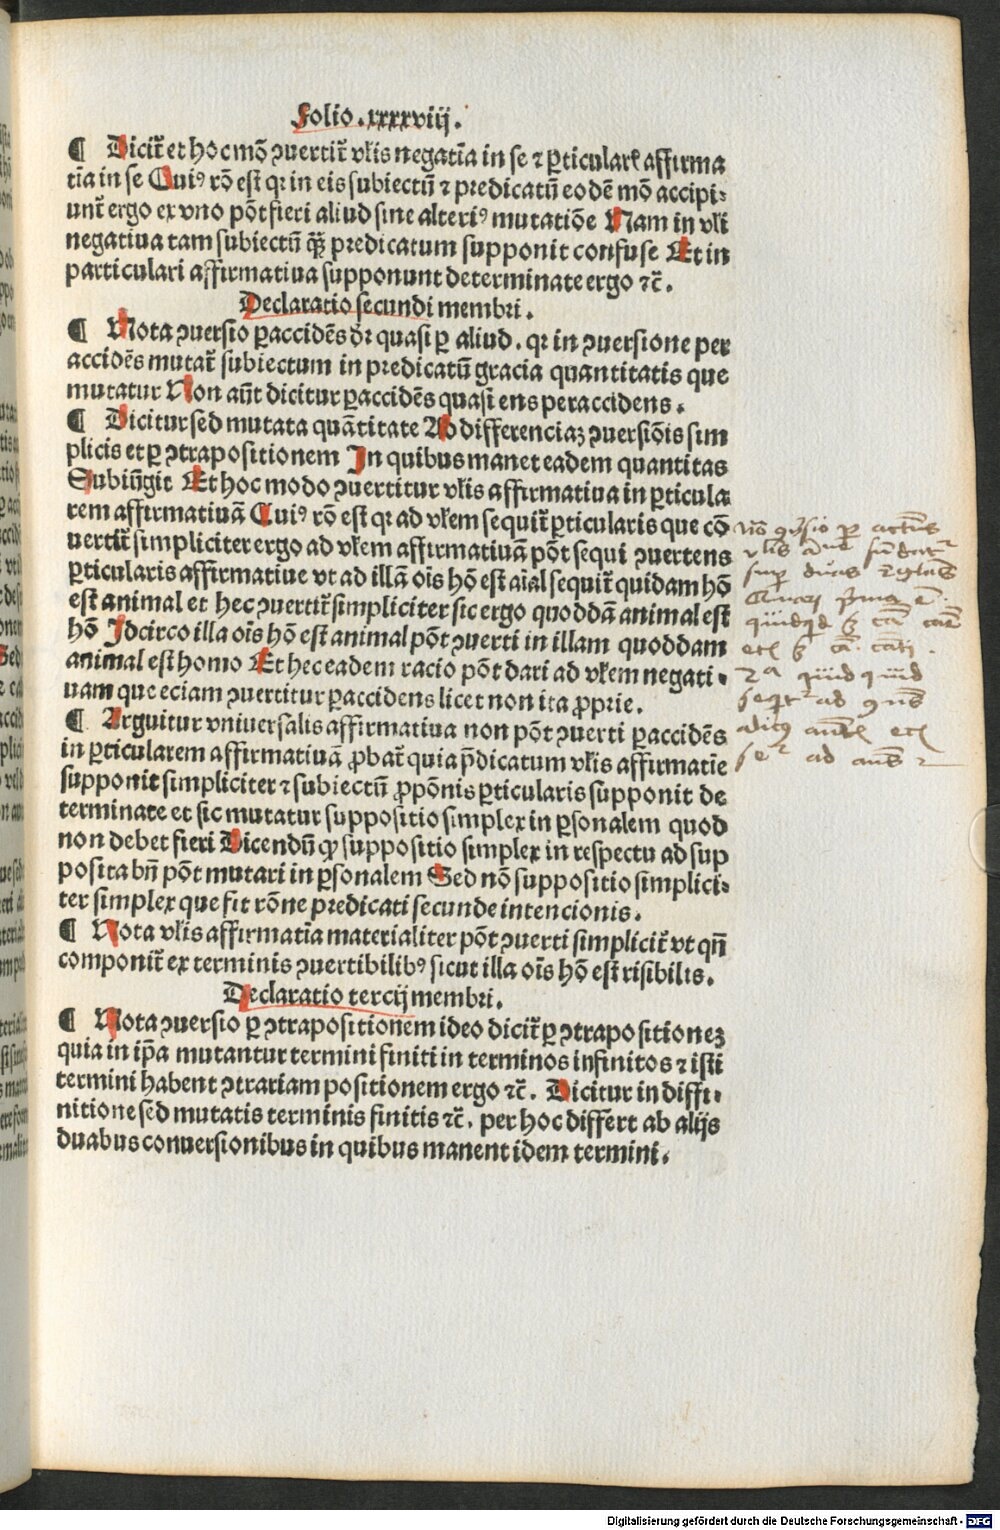 Folio .xxxxviij.
¶ Dicit᷑ et hoc mō ꝯuertit᷑ vlis̄ negatīa in se ⁊ ꝑticularē affirma
tīa in se Cuiꝰ rō est qꝛ in eis subiectū ⁊ predicatū eodē mō accipi⸗
unt᷑ ergo ex vno pōt fieri aliud sine alteriꝰ mutatiōe Nam in vl̄i
negatiua tam subiectū qꝙ̄ predicatum supponit confuse Et in
particulari affirmatiua supponunt determinate ergo ⁊c̄.
Declaratio secundi membri.
¶ Nota ꝯuersio ꝑaccidēs dr̄ quasi ꝑ aliud. qꝛ in ꝯuersione per
accidēs mutat᷑ subiectum in predicatū gracia quantitatis que
mutatur Non aūt dicitur ꝑaccidēs quasi ens peraccidens.
¶ Dicitur sed mutata quātitate Ad differenciaꝫ ꝯuersiōis sim
plicis et ꝑ ꝯtrapositionem In quibus manet eadem quantitas
Subiūgit Et hoc modo ꝯuertitur vlis̄ affirmatiua in ꝑticula⸗
rem affirmatiuā Cuiꝰ rō est qꝛ ad vlēm sequit᷑ ꝑticularis que cō
uertit᷑ simpliciter ergo ad vlēm affirmatiuā pōt sequi ꝯuertens
ꝑticularis affirmatiue vt ad illā oīs hō est aīal sequit᷑ quidam hō
est animal et hec ꝯuertit᷑ simpliciter sic ergo quoddā animal est
hō Idcirco illa oīs hō est animal pōt ꝯuerti in illam quoddam
animal est homo Et hec eadem racio pōt dari ad vlēm negati⸗
uam que eciam ꝯuertitur ꝑaccidens licet non ita ꝓprie.
¶ Arguitur vniuersalis affirmatiua non pōt ꝯuerti ꝑaccidēs
in ꝑticularem affirmatiuā ꝓbat᷑ quia p̄dicatum vlis̄ affirmatie
supponit simpliciter ⁊ subiectū ꝓpōnis ꝑticularis supponit de
terminate et sic mutatur suppositio simplex in ꝑsonalem quod
non debet fieri Dicendū ꝙ suppositio simplex in respectu ad sup
posita bn̄ pōt mutari in ꝑsonalem Sed nō suppositio simplici⸗
ter simplex que fit rōne predicati secunde intencionis.
¶ Nota vlis̄ affirmatīa materialiter pōt ꝯuerti simplicit᷑ vt qn̄
componit᷑ ex terminis ꝯuertibilibꝰ sicut illa oīs hō est risibilis.
Declaratio tercij membri.
¶ Nota ꝯuersio ꝑ ꝯtrapositionem ideo dicit᷑ ꝑ ꝯtrapositioneꝫ
quia in ip̄a mutantur termini finiti in terminos infinitos ⁊ isti
termini habent ꝯtrariam positionem ergo ⁊c̄. Dicitur in diffi⸗
nitione sed mutatis terminis finitis ⁊c̄. per hoc differt ab alijs
duabus conuersionibus in quibus manent idem termini.
Digitalisierung gefördert durch die Deutsche Forschungsgemeinschaft - DFG